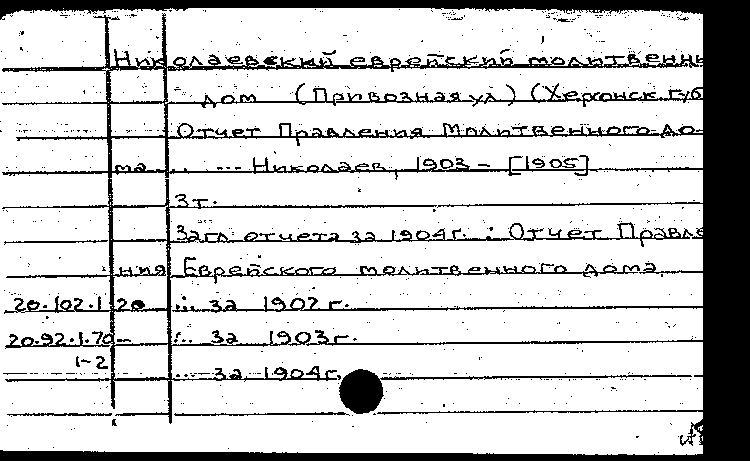 Николаевский еврейский молитвенны
дом (Привозная ул) (Херсонск. губ
Отчет Правления Молитвенного до-
ма ... Николаев, 1903 - [1905]
3 т.
Загл. отчета за 1904 г. : Отчет Правле
ния Еврейского молитвенного дома
20.102.1.20 ... за 1902 г.
20.92.1.70- ... за 1903 г.
1-2
... за 1904 г.